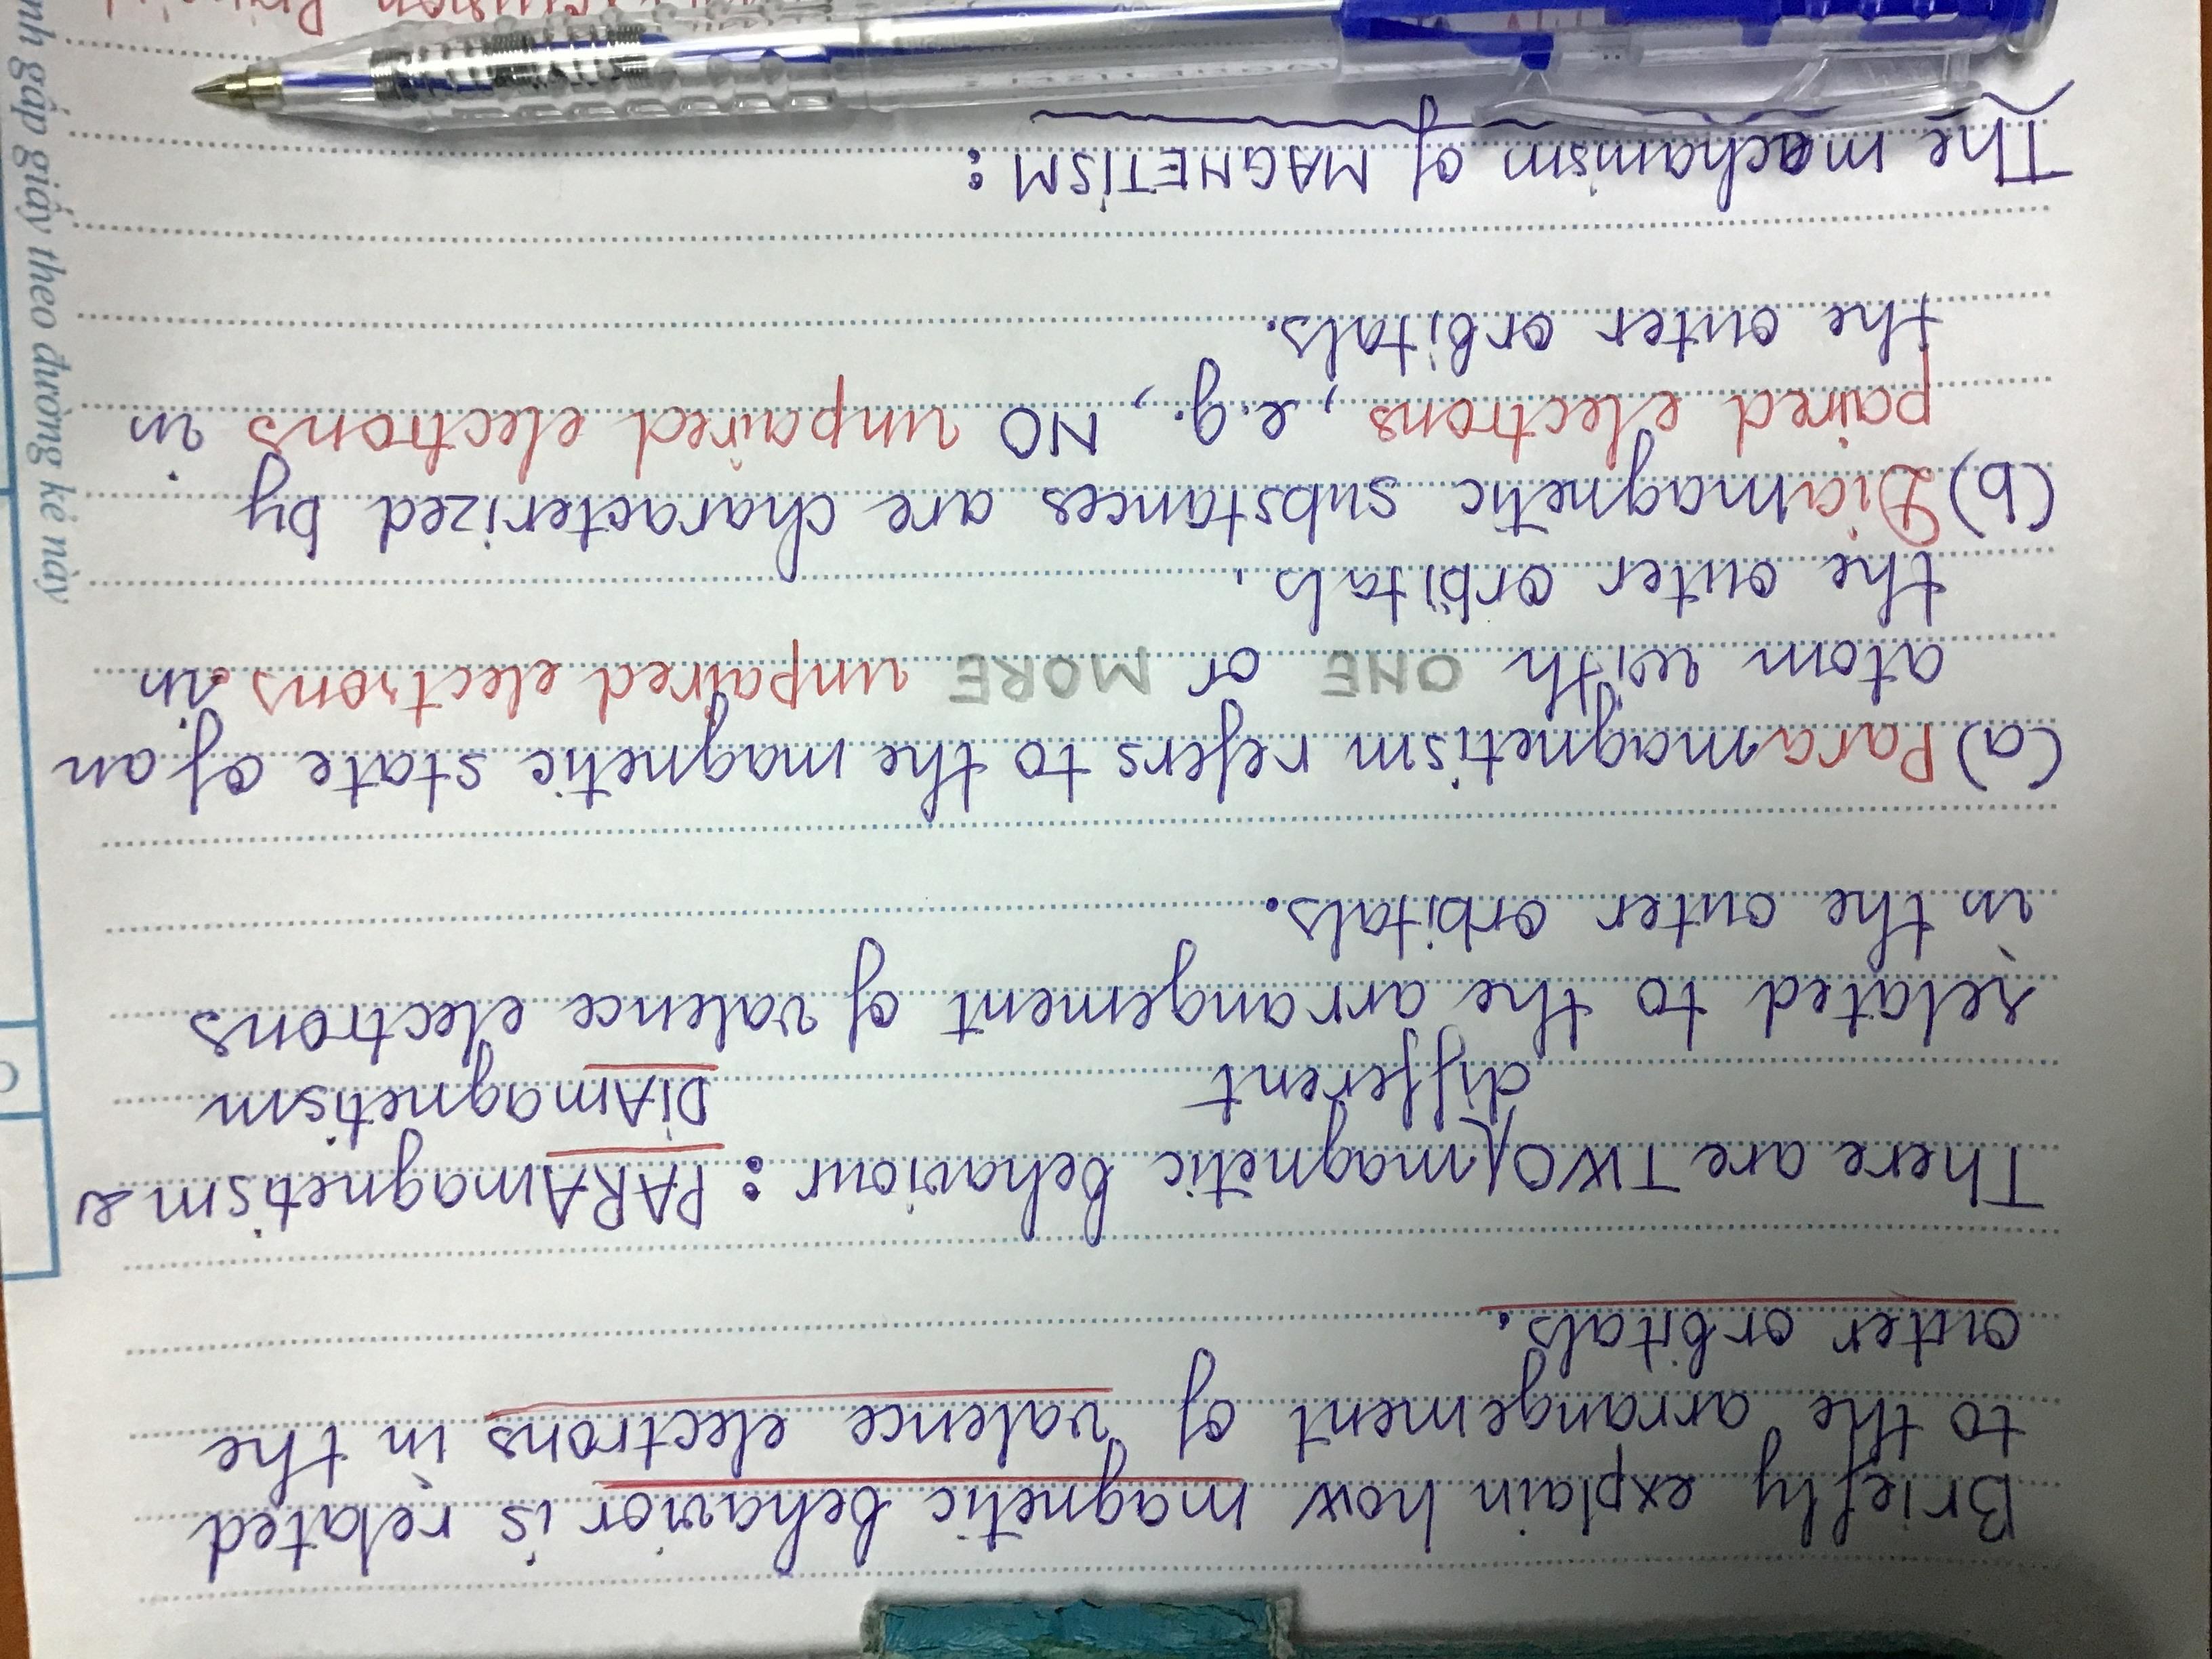 Briefly explain how magnetic behavior is related
to the arrangement of valence electrons in the
outer orbitals.
There are TWO magnetic behaviour: PARAmagnetism &
different
DiAmagnetism
related to the arrangement of valence electrons
in the outer orbitals.
(a) Paramagnetism refers to the magnetic state of an
atom with ONE or MORE unpaired electrons in
the outer orbitals.
(b) Diamagnetic substances are characterized by
paired electrons, e.g., NO unpaired electrons in
the outer orbitals.
The mechanism of MAGNETiSM:
gấp giấy theo đường kẻ này